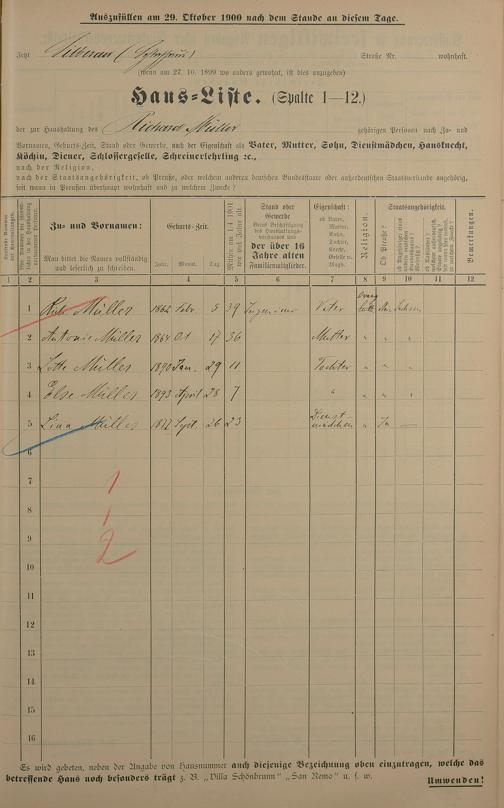 Auszufüllen am 29. Oktober 1900 nach dem Stande an diesem Tage.
Jetzt Straße Nr. wohnhaft.
(wenn am 27. 10. 1899 wo anders gewohnt, ist dies anzugeben)
Haus-Liste. (Spalte 1—12.)
der zur Haushaltung des Richard Müller gehörigen Personen nach Zu- und
Vornamen, Geburts-Zeit, Stand oder Gewerbe, und der Eigenschaft als Vater, Mutter, Sohn, Dienstmädchen, Hausknecht,
Köchin, Diener, Schlossergeselle, Schreinerlehrling ꝛc.,
nach der Religion,
nach der Staatsangehörigkeit, ob Preuße, oder welchem anderen deutschen Bundesstaate oder außerdeutschen Staatsverbande angehörig,
seit wann in Preußen überhaupt wohnhaft und zu welchem Zweck?
Zu- und Vornamen:
Man bittet die Namen vollständig
und leserlich zu schreiben.
Geburts-Zeit.
Jahr. Monat. Tag
Mithin am 1. 4. 1901
wie viel Jahre alt.
Stand oder
Gewerbe
der über 16
Jahre alten
Familienmitglieder.
Eigenschaft:
ob Vater,
Mutter,
Sohn,
Tochter,
Knecht,
Geselle,
Magd.
Religion.
Staatsangehörigkeit.
Ob Preuße?
Bemerkungen.
1 2 3 4 5 6 7 8 9 10 11 12
1 Müller 1862 Febr. 5 39 Ingenieur Vater
2 Antonie Müller 1864 Oct 17 36 Mutter " " "
3 Lotte Müller 1890 Jan. 29 11 Tochter " " "
4 Else Müller 1893 April 28 7 " " " "
5 Lina Müller 1877 Sept. 26 23 Dienst-
mädchen " Ja —
6
7 1
8 1
9 2
10
11
12
13
14
15
16
Es wird gebeten, neben der Angabe von Hausnummer auch diejenige Bezeichnung oben einzutragen, welche das
betreffende Haus noch besonders trägt z. B. „Villa Schönbrunn" „San Remo" u. s. w.
Umwenden!